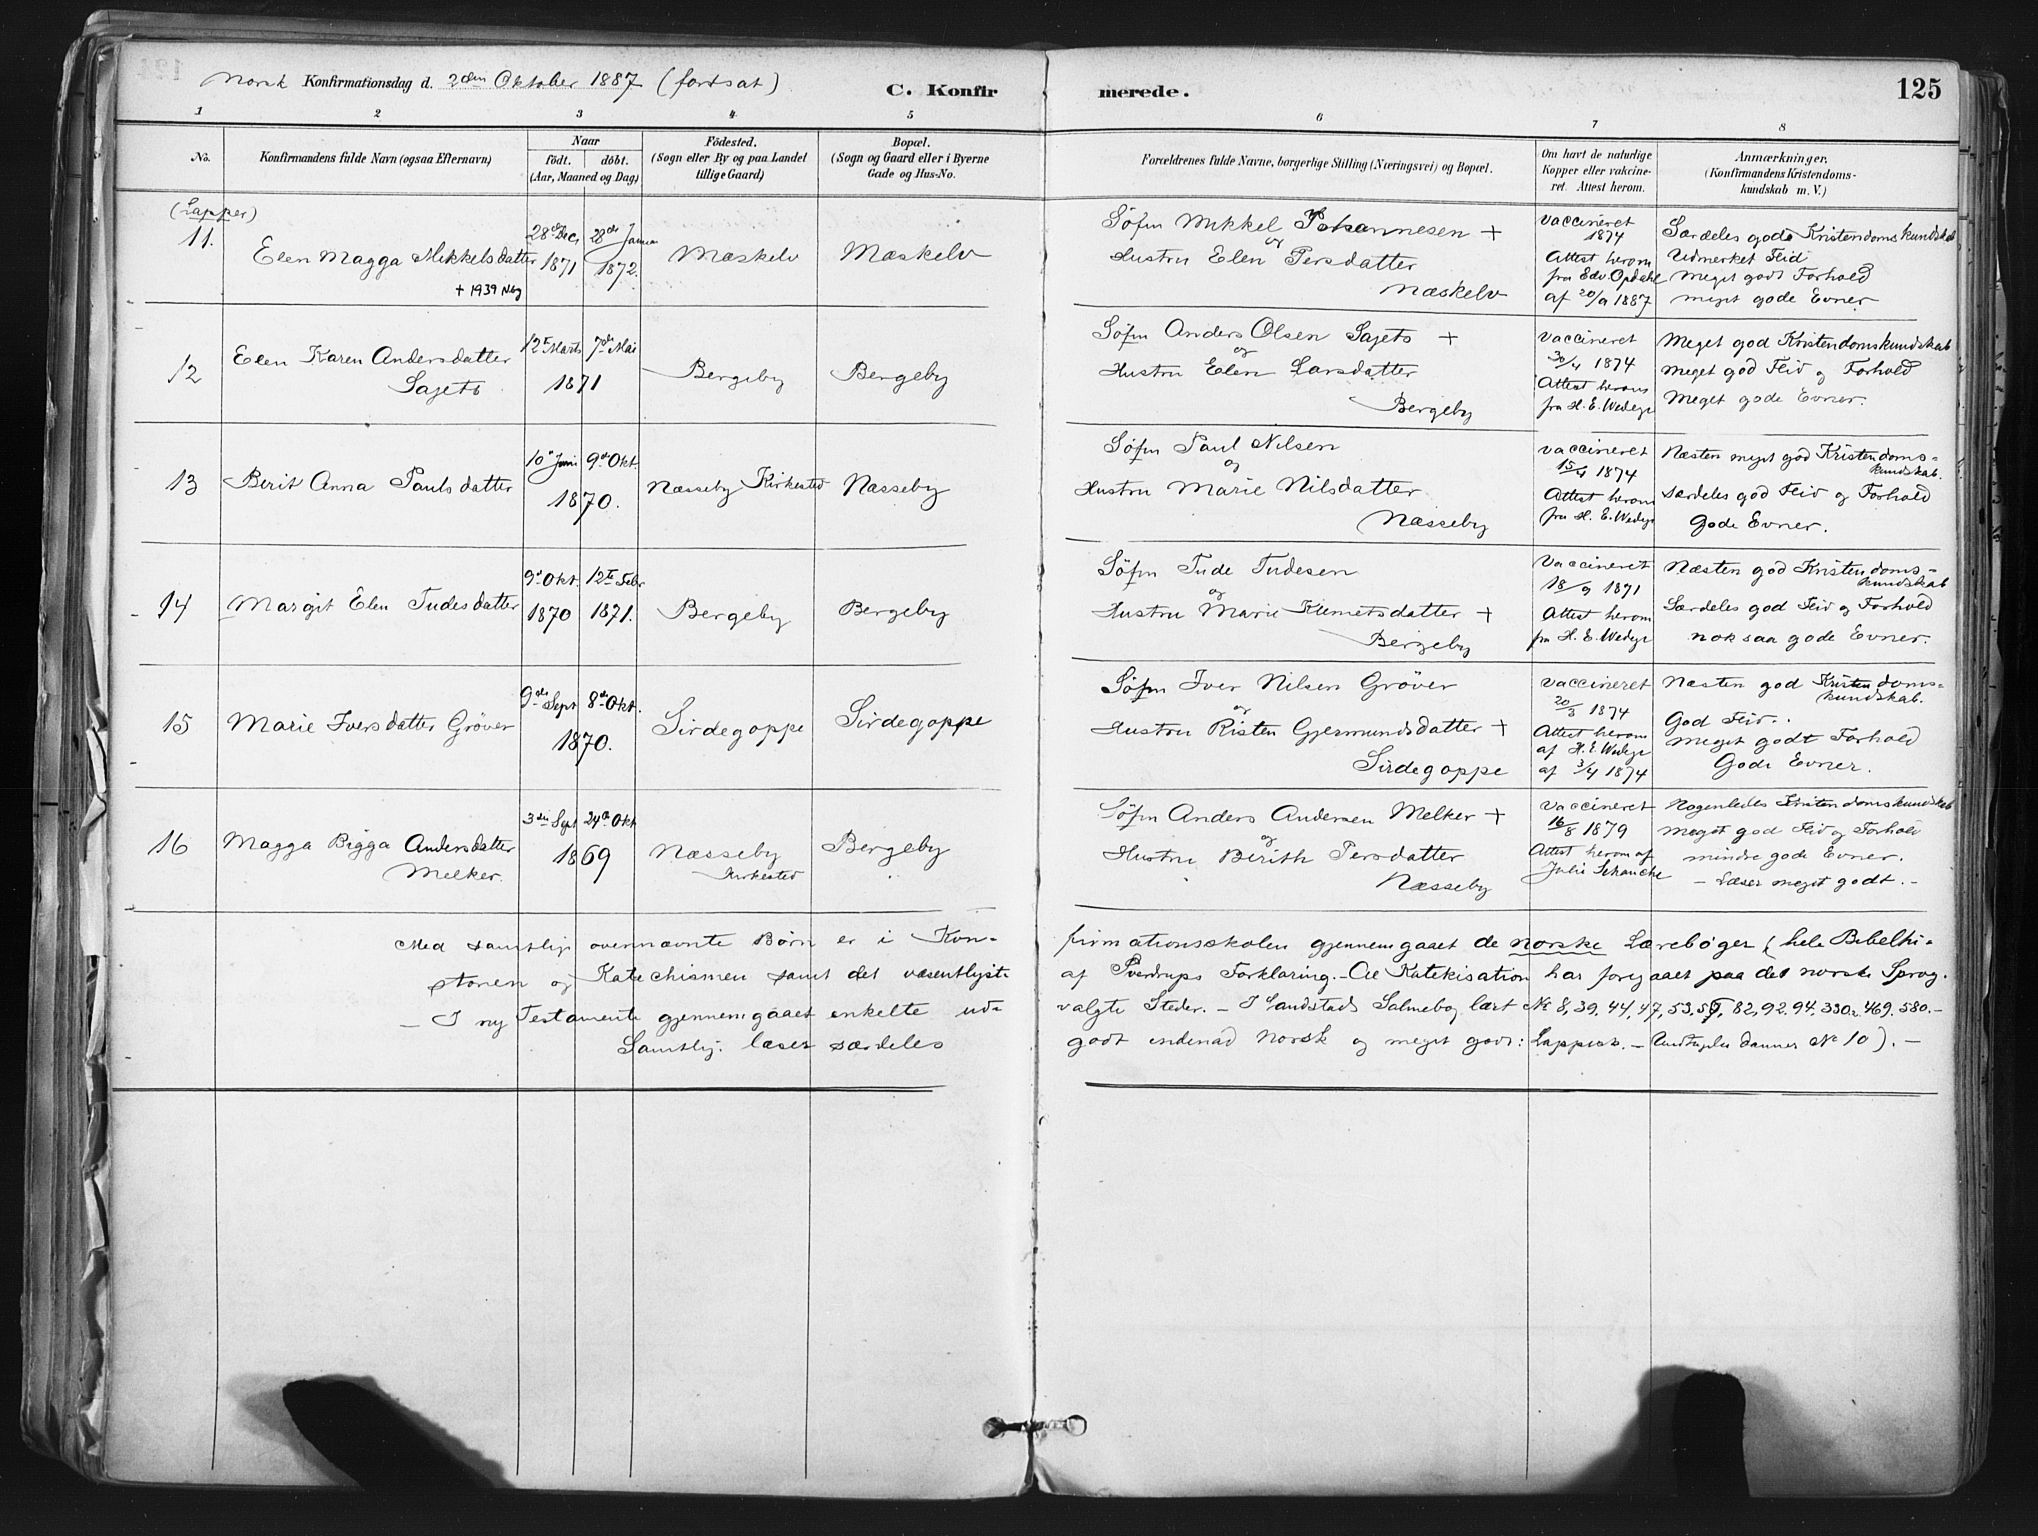 Norsk Konfirmationsdag d. 2den Oktober 1887 (fortsat)
C. Konfirmerede.
125
1 2 3 4 5 6 7 8
No.
Konfirmandens fulde Navn (ogsaa Efternavn)
Naar
født. døbt.
(Aar, Maaned og Dag)
Fødested.
(Sogn eller By og paa Landet
tillige Gaard)
Bopæl.
(Sogn og Gaard eller i Byerne
Gade og Hus-No.
Forældrenes fulde Navne, borgerlige Stilling (Næringsvei) og Bopæl.
Om havt de naturlige
Kopper eller vakcine-
ret. Attest herom.
Anmærkninger.
(Konfirmandens Kristendoms-
kundskab m. V.)
(Lapper)
11.
Elen Magga Mikkelsdatter
+ 1939 Nby
28de Decr
1871
28de Januar
1872.
Mæskelv
Mæskelv
Søfin Mikkel Johannesen +
og
Hustru Elen Persdatter
Mæskelv
Vaccineret
1874
Attest herom
fra Edv. Opdahl
af 20/9 1887
Særdeles gode Kristendomskundskab
Udmerket Flid
Meget godt Forhold
meget gode Evner
12
Elen Karen Andersdatter
Sajets
12te Marts 7de Mai
1871
Bergeby
Bergeby
Søfin Anders Olsen Sajets +
og
Hustru Elen Larsdatter
Bergeby
Vaccineret
30/4 1874
Attest herom
fra H. E. Wedege
Meget god Kristendomskundskab
Meget god Flid og Forhold
Meget gode Evner.
13
Berit Anna Paulsdatter
10de Juni 9de Okt.
1870.
Næsseby Kirkested
Næsseby
Søfin Paul Nilsen
og
Hustru Marie Nilsdatter
Næsseby
Vaccineret
15/4 1874
Attest herom
fra H. E. Wedege
Næsten meget god Kristendoms-
kundskab.
Særdeles god Flid og Forhold
Gode Evner.
14
Margit Elen Tudesdatter
9de Okt. 12te Febr
1870 1871.
Bergeby
Bergeby
Søfin Tude Tudesen
og
Hustru Marie Klemetsdatter +
Bergeby
Vaccineret
18/9 1871
Attest herom
fra H. E. Wedege
Næsten god Kristendoms-
kundskab
Særdeles god Flid og Forhold
nok saa gode Evner.
15
Marie Iversdatter Grøver
9de Sept 8de Okt.
1870.
Sirdegoppe
Sirdegoppe
Søfin Iver Nilsen Grøver
og
Hustru Risten Gjermundsdatter +
Sirdegoppe
Vaccineret
20/3 1874
Attest herom
af H. E. Wedege
af 3/4 1874
Næsten god Kristendoms-
kundskab.
God Flid.
Meget godt Forhold
Gode Evner.
16
Magga Bigga Andersdatter
Melker.
3die Sept 24de Okt
1869
Næsseby
Kirkested
Bergeby
Søfin Anders Andersen Melker +
og
Hustru Birith Persdatter
Næsseby
Vaccineret
16/8 1879
Attest herom af
Julie Schanche
Nogenledes Kristendomskundskab
meget god Flid og Forhold
mindre gode Evner.
- Læser meget godt. -
Med samtlige ovennævnte Børn er i Kon-firmationsskolen gjennemgaaet de norske Lærebøger (hele Bibelhi-
storien og Katechismen samt det væsentligste af Sverdrups Forklaring. - Al Katekisation har foregaaet paa det norske Sprog.
- I ny Testamente gjennemgaaet enkelte ud-valgte Steder. - I Landstads Salmebog lært No 8, 39, 44, 47, 53, 59, 82, 92, 94, 330, 469, 580. -
Samtlige læser særdeles godt indenad Norsk og meget godt: Lappisk. - danner No 10). -